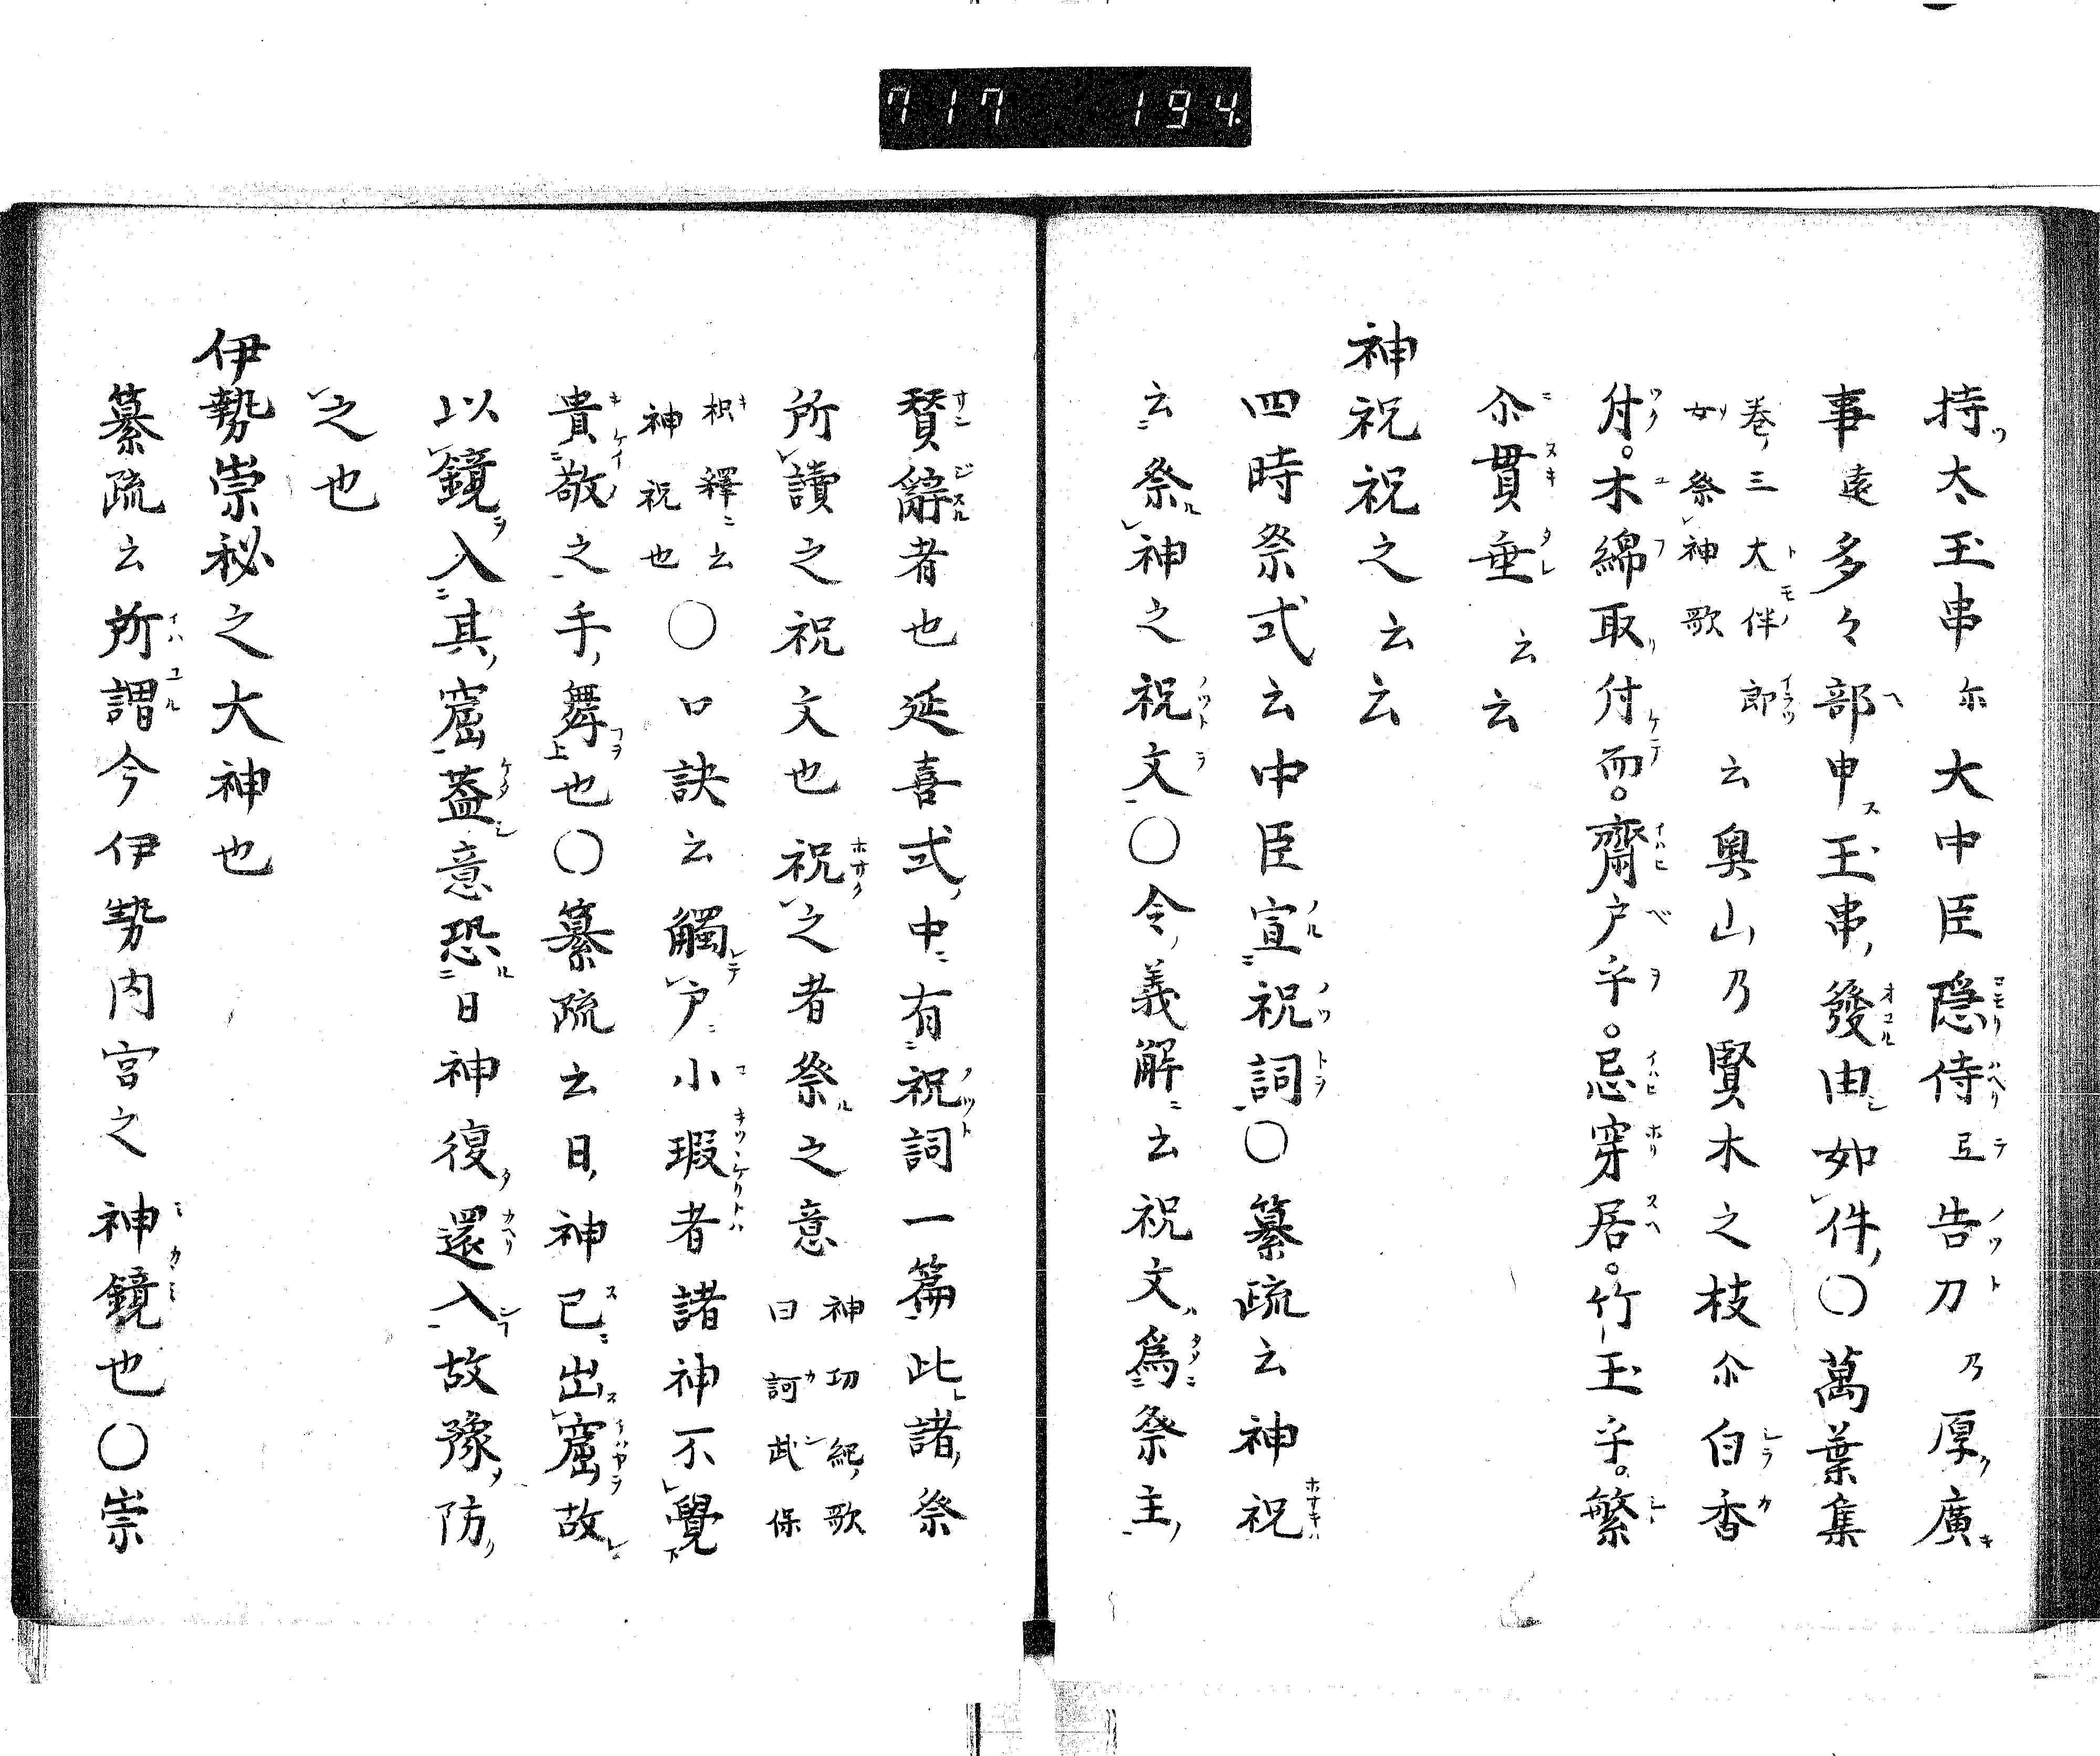 717 194
持太玉串尓大中臣隠侍弖告刀乃厚廣
事遠多々部申玉串發由如件○萬葉集
巻三大伴郎
女祭神歌
云奥山乃賢木之枝尒白香
付。木綿取付而。齋戸乎。忌穿居。竹玉乎。繁
尒貫垂云云
神祝祝之云云
四時祭式云中臣宣祝詞○纂疏云神祝
云祭神之祝文○令義解云祝文為祭主
賛辭者也延喜式中有祝詞一篇此諸祭
所讀之祝文也祝之者祭之意
神功紀歌
曰訶武保
枳釋云
神祝也
○口訣云觸戸小瑕者諸神不覺
貴敬之手舞也○纂疏云日神已出窟故
以鏡入其窟蓋意恐日神復還入故豫防
之也
伊勢崇秘之大神也
纂疏云所謂今伊勢内宮之神鏡也○崇